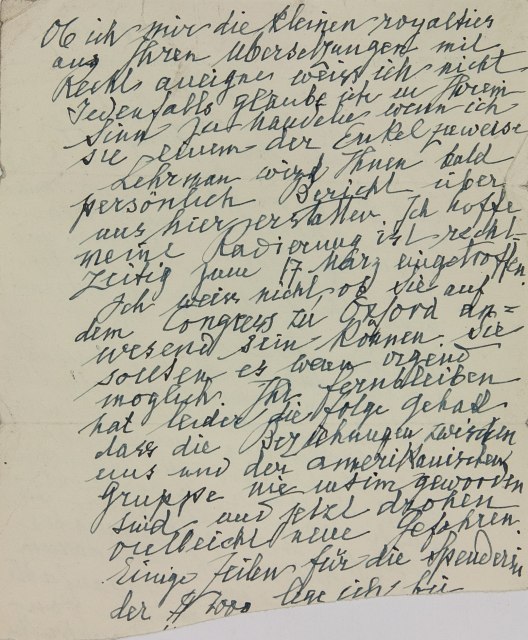 Ob ich mir die kleinen royalties
aus Ihren Übersetzungen mit
Recht aneigne weiss ich nicht
Jedenfalls glaube ich in Ihrem
Sinn zu handeln wenn ich
sie einem der Enkel zuweise
Lehrman wird Ihnen bald
persönlich Bericht über
uns hier erstatten. Ich hoffe
meine Radierung ist recht-
zeitig zum 17 März eingetroffen.
Ich weiss nicht ob Sie auf
dem Congress zu Oxford an=
wesend sein können. Sie
sollten es wenn irgend
möglich. Ihr Fernbleiben
hat leider die Folge gehabt
dass die Beziehungen zwischen
uns und der amerikanischen
Gruppe nie intim geworden
sind und jetzt drohen
vielleicht neue Gefahren.
Einige Zeilen für die Spenderin
der $ 5000 lege ich bei